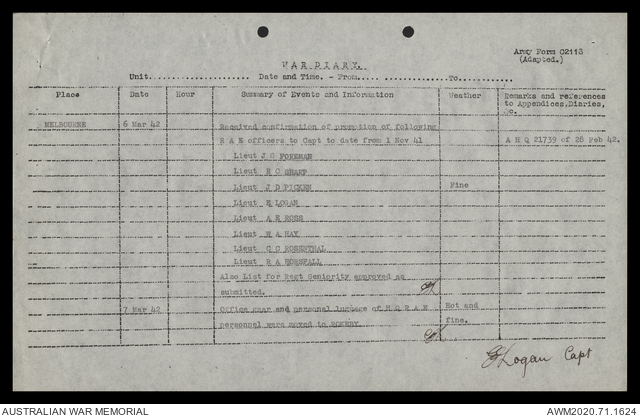 Army Form C2113
(Adapted.)
WAR DIARY.
Unit..................... Date and Time. - From..... ..............To............
Place Date Hour Summary of Events and Information Weather Remarks and references
to Appendices,Diaries,
&c.
MELBOURNE 6 Mar 42 Received confirmation of promotion of following
R A E officers to Capt to date from 1 Nov 41 A H Q 21739 of 28 Feb 42.
Lieut J G FOREMAN
Lieut H C SHARP
Lieut J D PICKEN Fine
Lieut E LOGAN
Lieut A E ROSS
Lieut W A HAY
Lieut G C ROSENTHAL
Lieut R A HORSFALL
Also List for Regt Seniority approved as
submitted.
7 Mar 42 Office gear and personal luggage of H Q R A E Hot and
personnel were moved to fine.
E Logan Capt
AUSTRALIAN WAR MEMORIAL AWM2020.71.1624